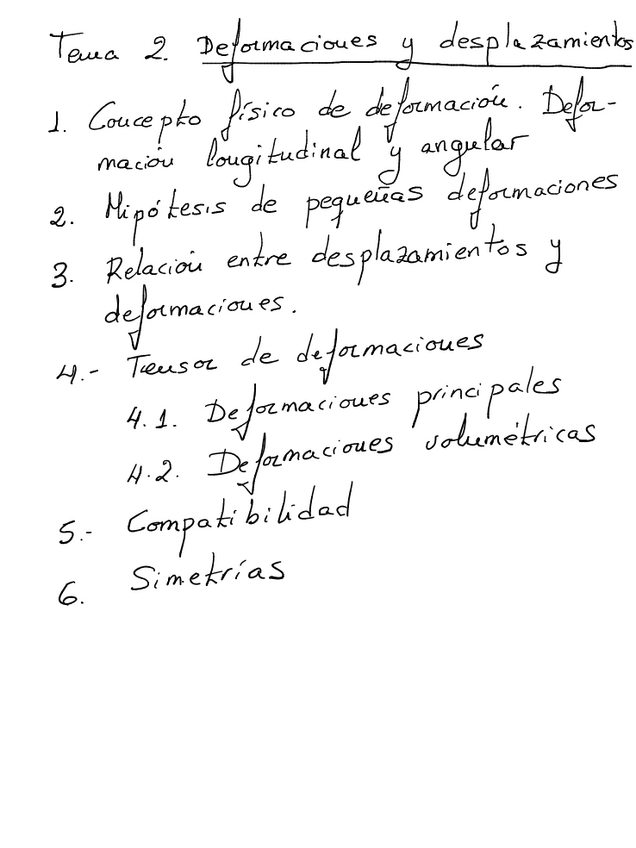 Tema 2. Deformaciones y desplazamientos
1. Concepto físico de deformación. Defor-
mación longitudinal y angular
2. Hipótesis de pequeñas deformaciones
3. Relación entre desplazamientos y
deformaciones.
4.- Tensor de deformaciones
4.1. Deformaciones principales
4.2. Deformaciones volumétricas
5.- Compatibilidad
6. Simetrías